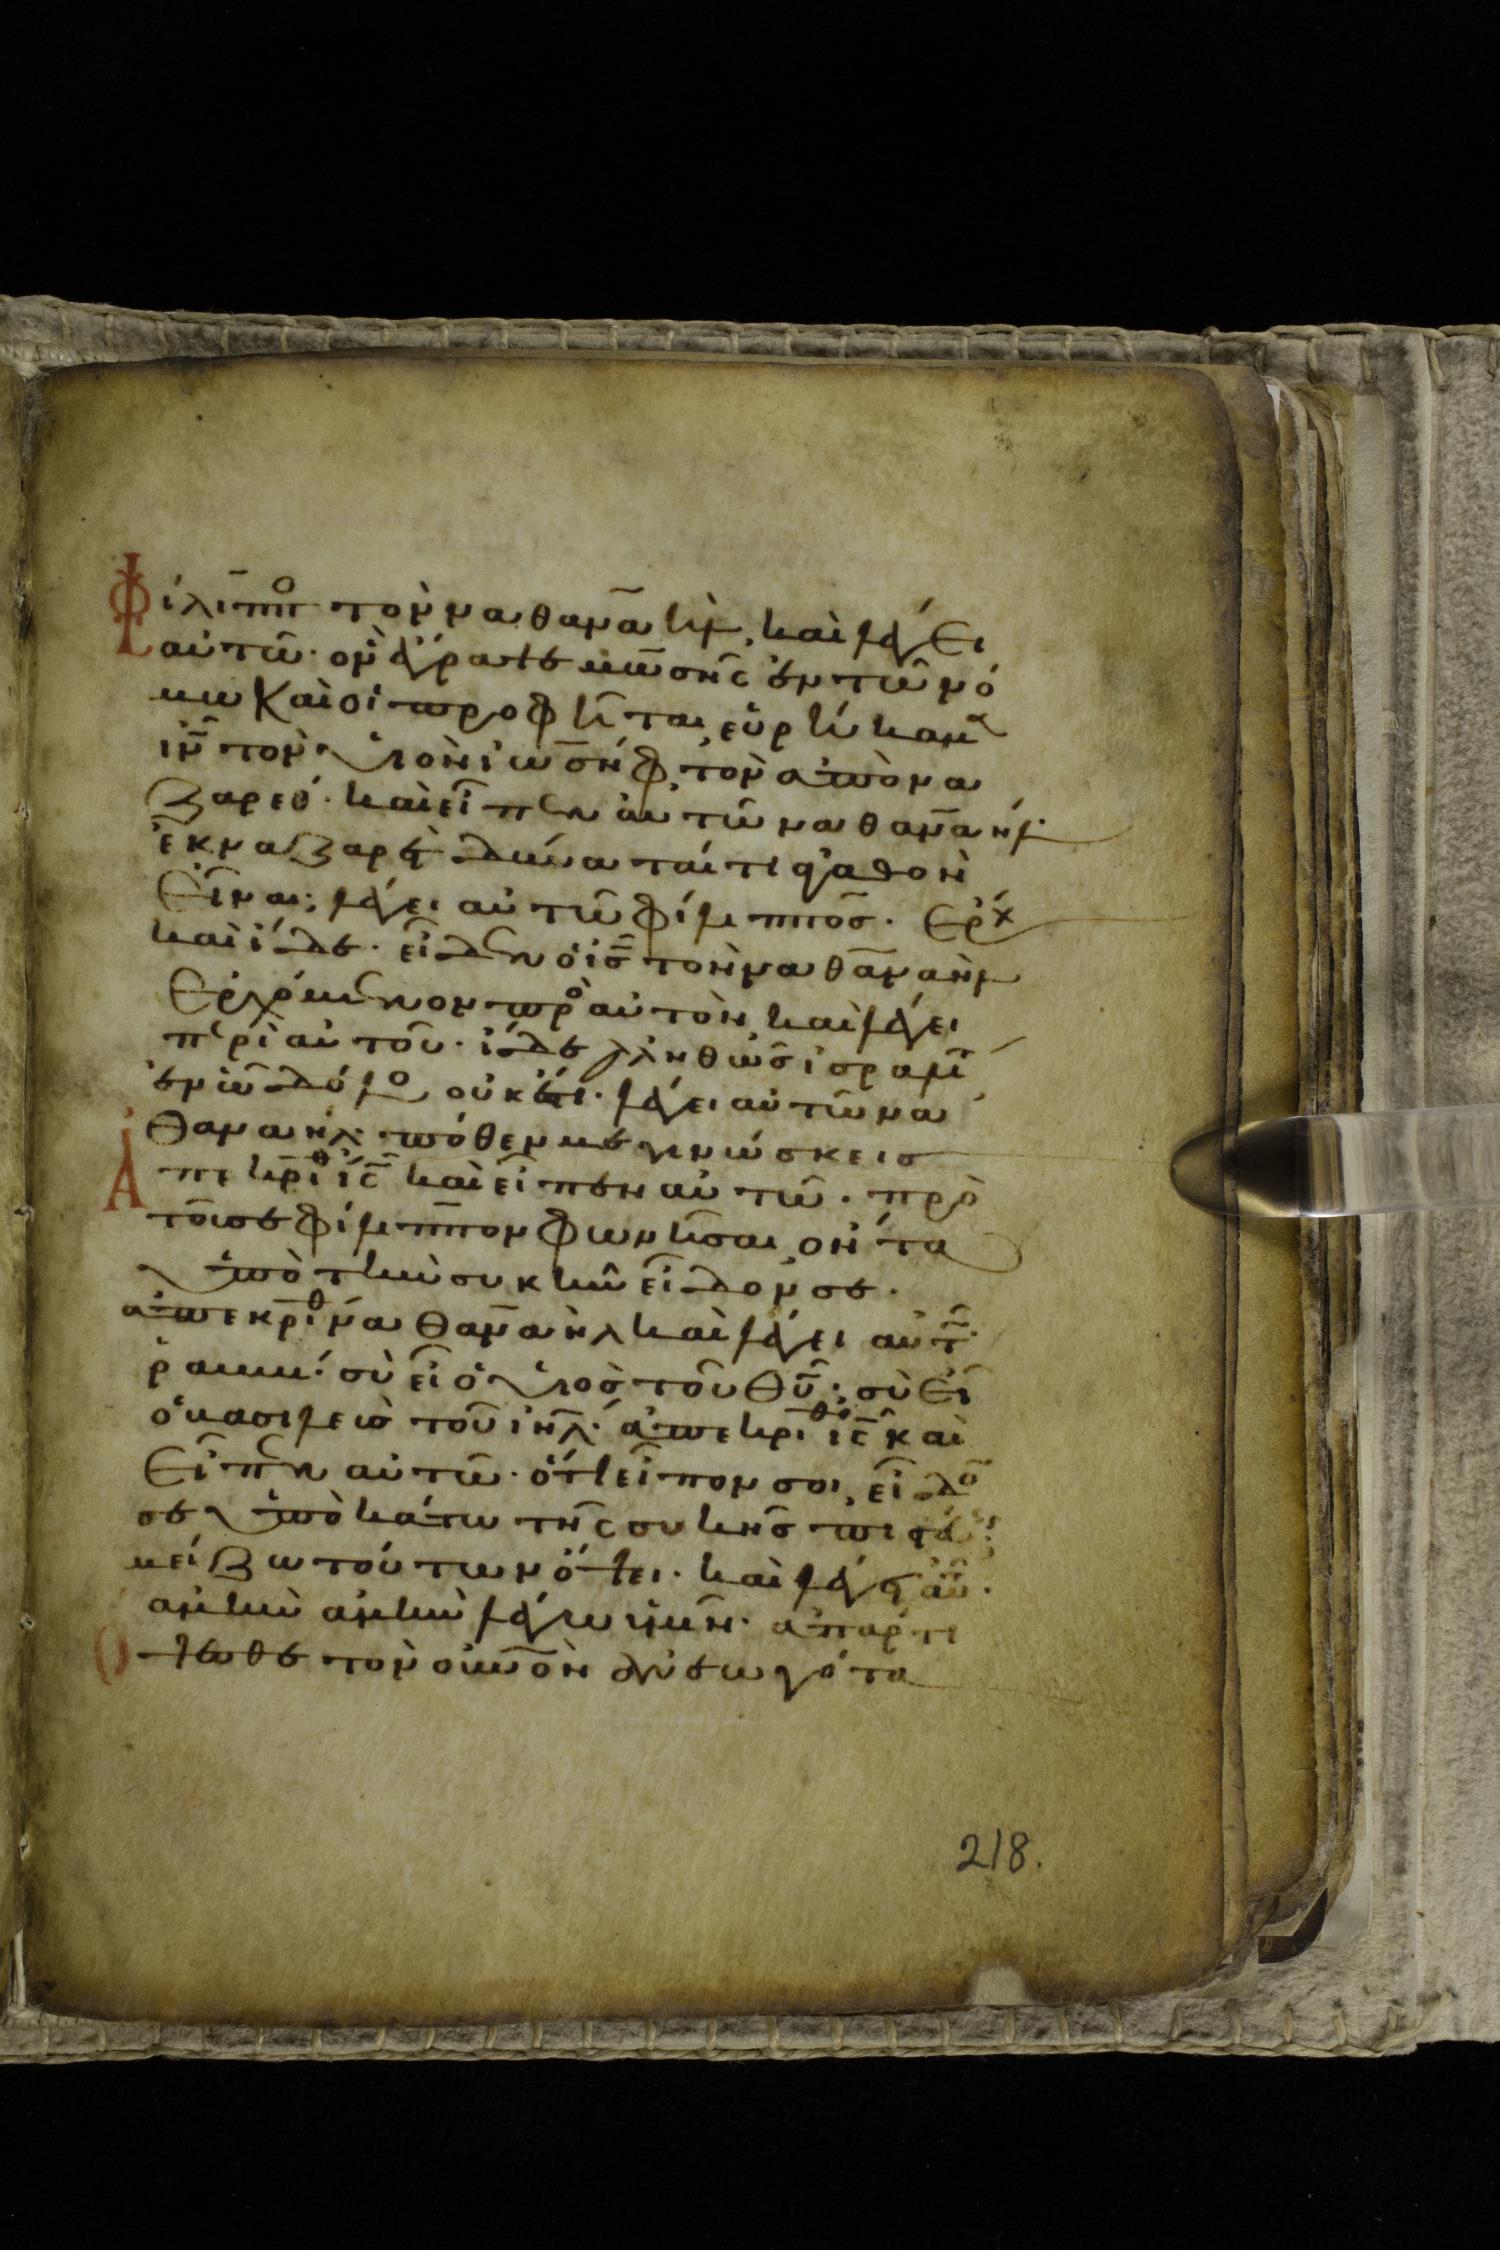 Φίλιππο τὸν ναθαναὴλ, καὶ λέγει
αὐτῶ· ὃν ἔγραψε μωσῆς ἐν τῶ νό
μω καὶ οἱ προφῆται, εὑρήκαμεν
ιν τὸν υἱὸν ἰωσὴφ, τὸν ἀπὸ να
ζαρέθ· καὶ εἶπεν αὐτῶ ναθαναήλ·
ἐκ ναζαρὲτ δύναταί τι ἀγαθὸν
εἶναι; λέγει αὐτῶ φίλιππος· ἔρχ
καὶ ἴδε· εἶδεν ὁ ις τὸν ναθαναὴλ
ἐρχόμενον προ αὐτὸν, καὶ λέγει
περὶ αὐτοῦ· ἴδε ἀληθῶς ἰσραηλ
ἐν ὧ δόλο οὐκ ἔστι· λέγει αὐτῶ να
θαναήλ· πόθεν με γινώσκεις
Ἀπεκριθ ις καὶ εἶπεν αὐτῶ· πρὸ
τοῦ σε φίλιππον φωνῆσαι, ὄντα
ὑπὸ τὴν συκῆν εἶδόν σε·
ἀπεκριθ ναθαναὴλ καὶ λέγει αὐτ·
ῥαββί· σὺ εἶ ὁ υἱὸς τοῦ θυ· σὺ εἶ
ὁ βασιλεὺς τοῦ ιηλ· ἀπεκριθ ις καὶ
εἶπεν αὐτῶ· ὅτι εἶπόν σοι, εἶδο
σε ὑποκάτω τῆς συκῆς
μείζω τούτων ὄψει· καὶ λέγ αὐ·
ἀμὴν ἀμὴν λέγω ὑμῖν· ἀπάρτι
ὄψεσθε τὸν οὐνὸν ἀνεωγότα
218.